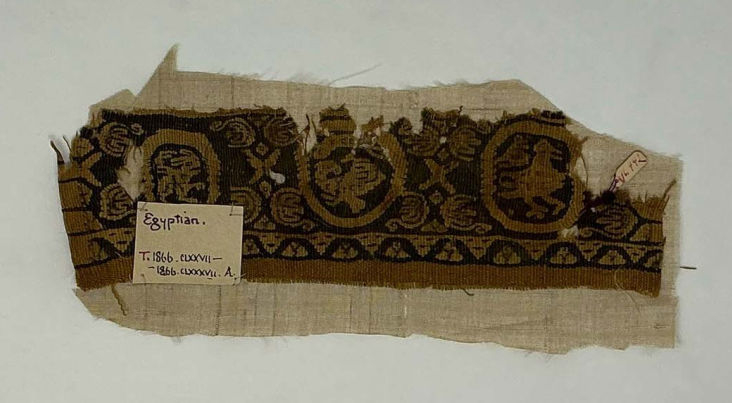 Egyptian.
T. 1866. CLXXVII —
— 1866. CLXXXVII. A.